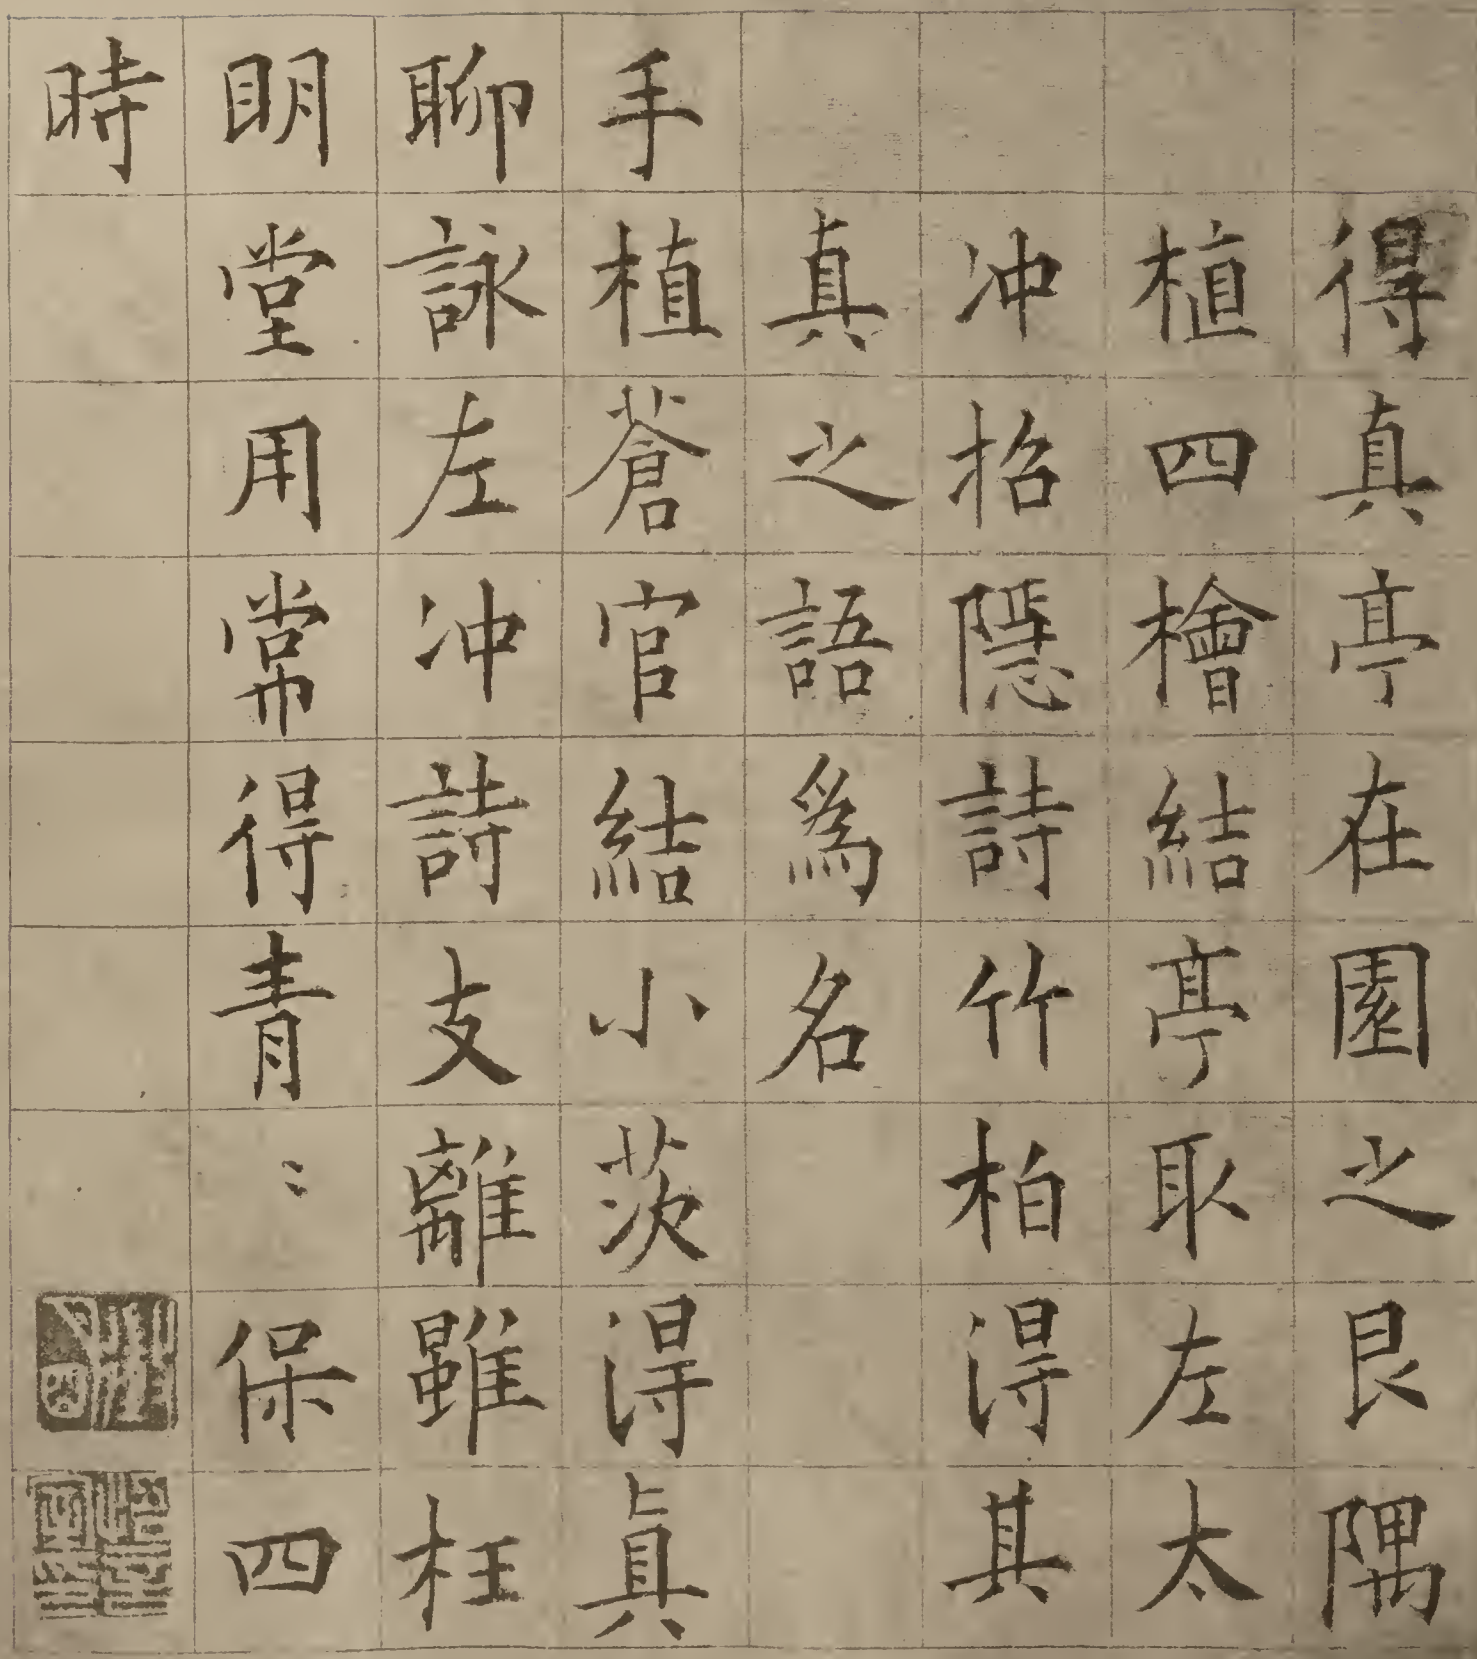 得真亭在園之艮隅
植四檜結亭取左太
冲招隱詩竹柏得其
真之語爲名
手植蒼官結小茨得眞
聊詠左冲詩支離雖枉
明堂用常得青〻保四
時